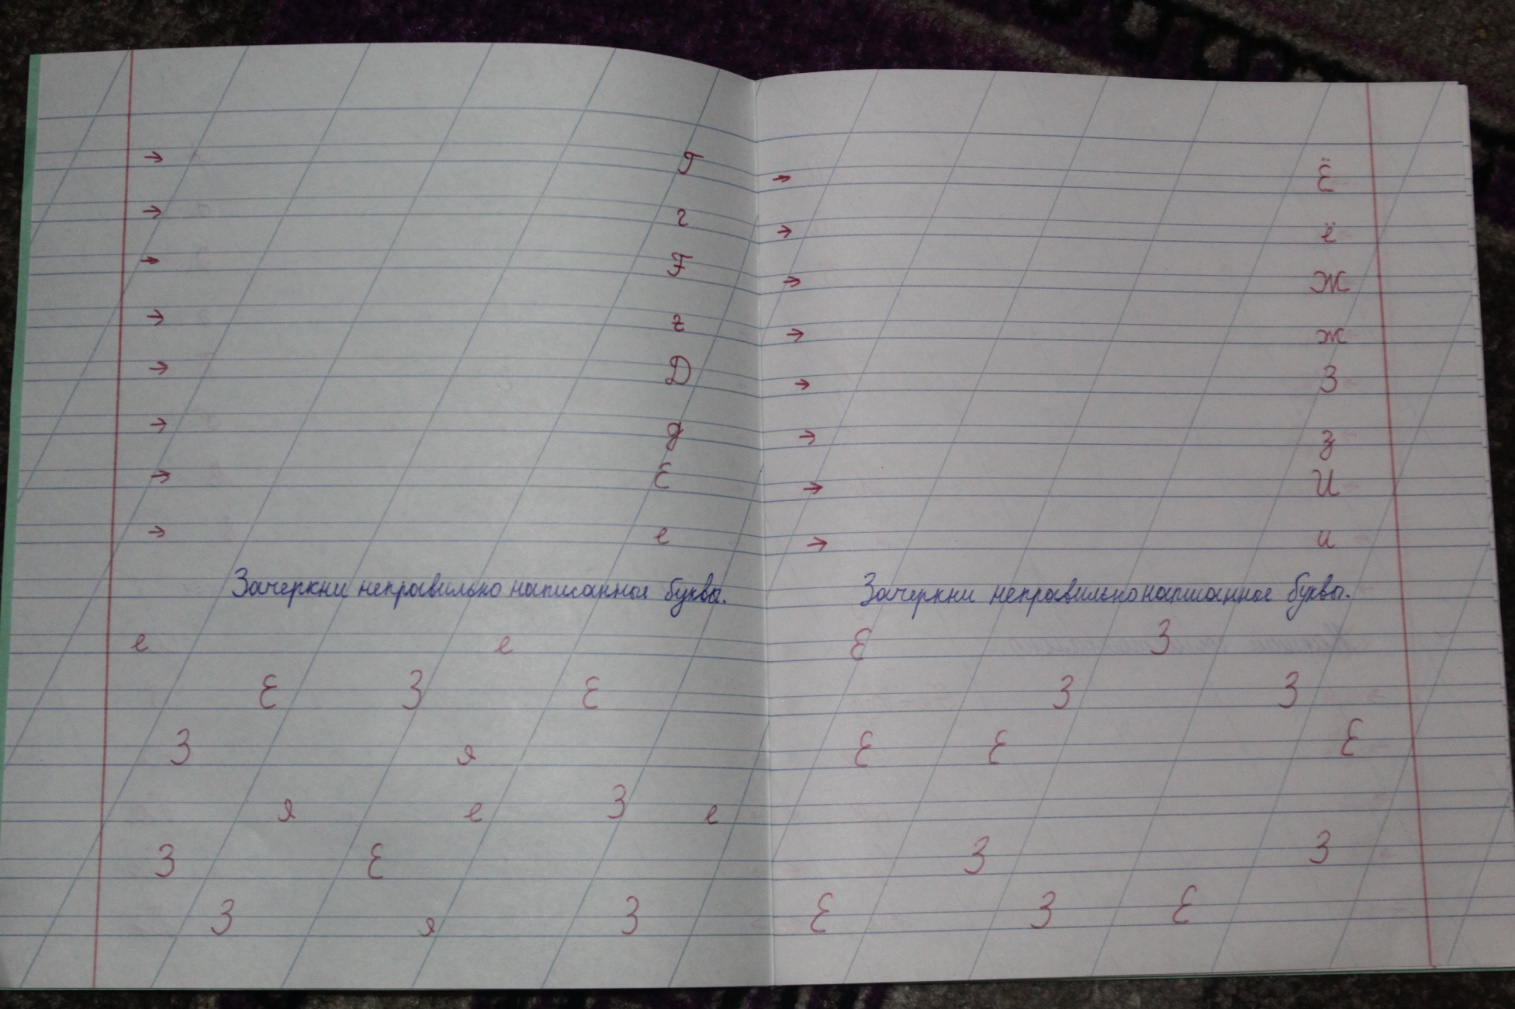 → Г
→ г
→ Ғ
→ г
→ Д
→ д
→ Е
→ е
Зачеркни неправильно написанные буквы.
е е
Е З Е
З я
я е З е
З Е
З я З
→ Ё
→ ё
→ Ж
→ ж
→ З
→ з
→ И
→ и
Зачеркни неправильно написанные буквы.
Е З
З З
Е Е Е
З З
Е З Е